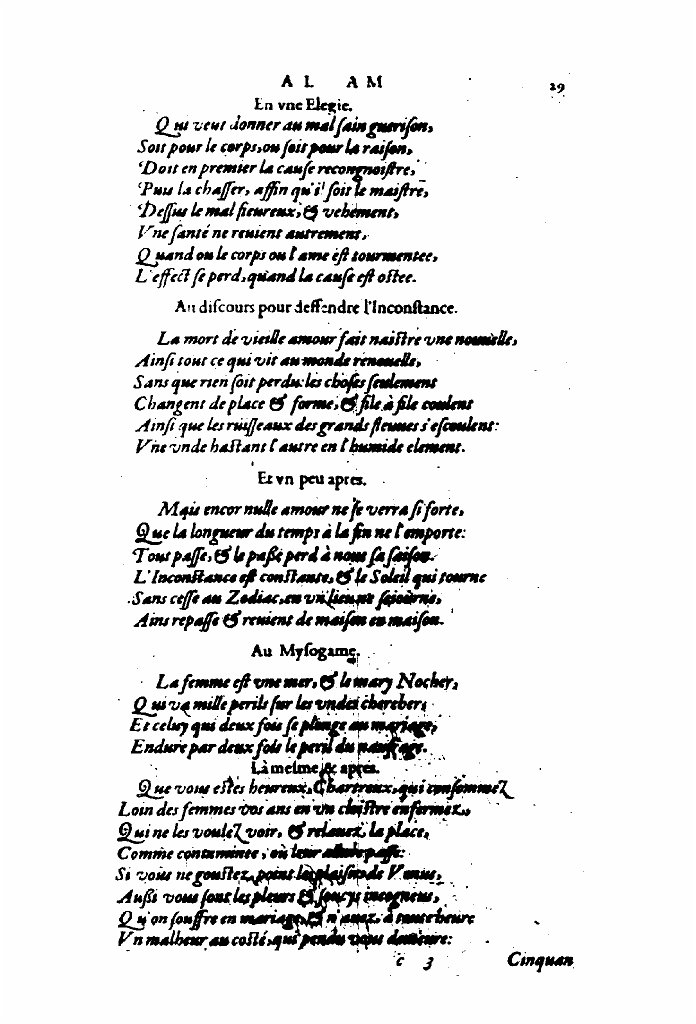 AL AM 29
En vne Elegie.
Qui veut donner au mal ſain gueriſon,
Soit pour le corps, ou ſoit pour la raiſon,
Doit en premier la cauſe recongnoiſtre,
Puis la chaſſer, affin qu'il ſoit le maiſtre,
Deſſus le mal fieureux, & vehement,
Vne ſanté ne reuient autrement,
Quand ou le corps ou l'ame eſt tourmentee,
L'effect ſe perd, quand la cauſe eſt oſtee.
Au diſcours pour deffendre l'Inconſtance.
La mort de vieille amour fait naiſtre vne nouuelle,
Ainſi tout ce qui vit au monde renouuelle,
Sans que rien ſoit perdu: les choſes ſeulement
Changent de place & forme, & file à file coulent
Ainſi que les ruiſſeaux des grands fleuues s'eſcoulent:
Vne vnde haſtant l'autre en l'humide element.
Et vn peu apres.
Mais encor nulle amour ne ſe verra ſi forte,
Que la longueur du temps à la fin ne l'emporte:
Tout paſſe, & le paßé perd à nous ſa ſaiſon.
L'Inconſtance eſt conſtante, & le Soleil qui tourne
Sans ceſſe au Zodiac, en vn lieu ne ſeiourne,
Ains repaſſe & reuient de maiſon en maiſon.
Au Myſogame.
La femme eſt vne mer, & le mary Nocher,
Qui va mille perils ſur les vndes chercher,
Et celuy qui deux fois ſe plonge au mariage,
Endure par deux fois le peril du naufrage.
Là meſme & apres.
Que vous eſtes heureux, Chartreux, qui conſommez
Loin des femmes vos ans en vn cloiſtre enfermez,
Qui ne les voulez voir, & relauez la place,
Comme contaminee, où leur paſſe:
Si vous ne gouſtez point les plaiſirs de Venus,
Außi vous ſont les pleurs & ſoucys incogneus,
Qu'on ſouffre en mariage, & n'auez à toute heure
Vn malheur au coſté, qui pendu vous demeure:
c 3 Cinquan